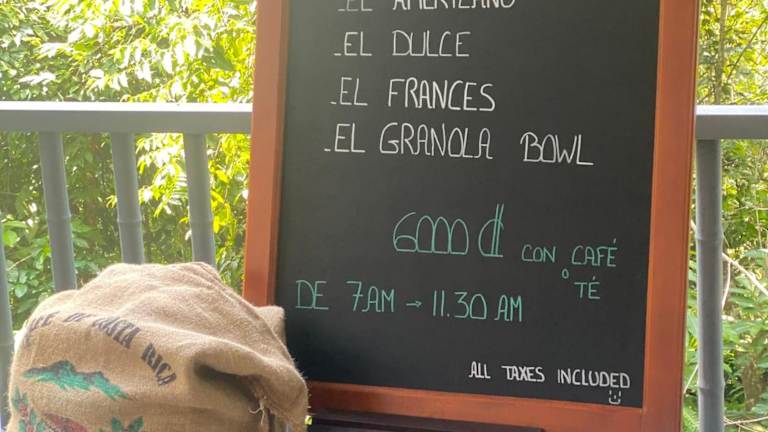 -EL AMERICANO
-EL DULCE
-EL FRANCES
-EL GRANOLA BOWL
6000 ₡ CON CAFÉ
o
TÉ
DE 7AM → 11.30 AM
ALL TAXES INCLUDED
DE COSTA RICA